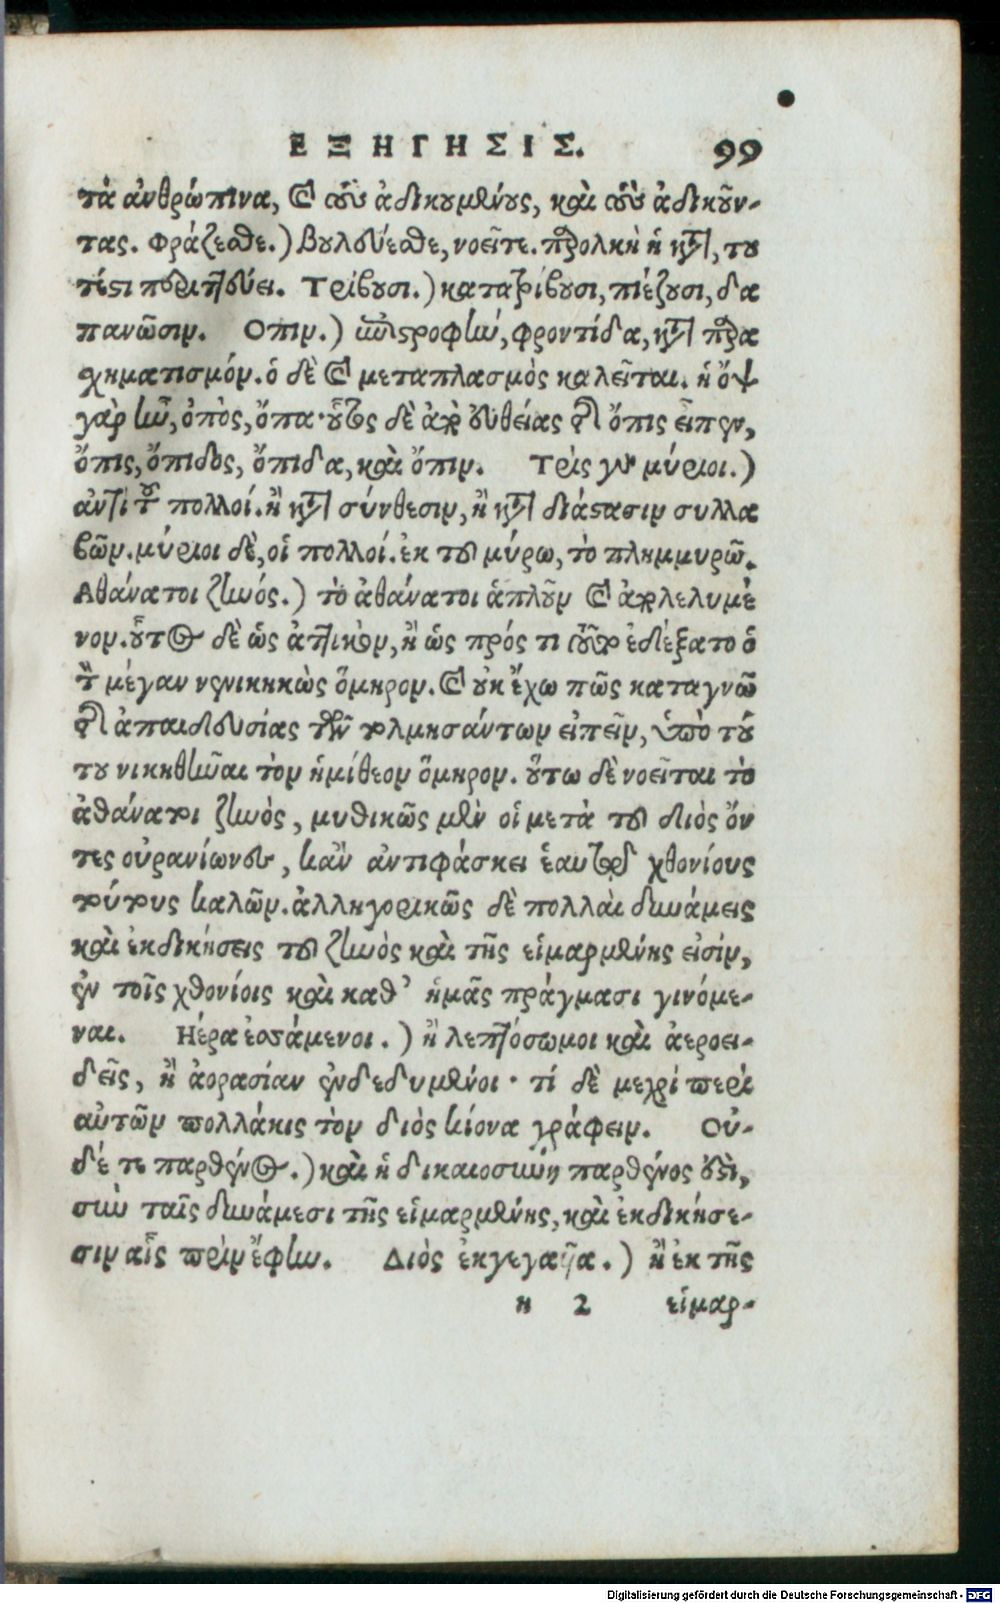 ΕΞΗΓΗΣΙΣ. 99
τὰ ἀνθρώπινα, καὶ τοὺς ἀδικουμένους, καὶ τοὺς ἀδικοῦν-
τας. Φράζεσθε.) βουλεύεσθε, νοεῖτε. παρολκὴ ἡ κατά, του
τέστι περιττεύει. Τρίβουσι.) κατατρίβουσι, πιέζουσι, δα
πανῶσιν. Οπιν.) ἐπιστροφὴν, φροντίδα, κατὰ παρα
χηματισμόν. ὁ δὲ καὶ μεταπλασμὸς καλεῖται. ἡ ὄψ
γὰρ ἦν, ὀπὸς, ὄπα· οὗτος δὲ ἀπὸ εὐθείας τῆς ὄπις εἶπεν,
ὄπις, ὄπιδος, ὄπιδα, καὶ ὄπιν. Τρὶς γὰρ μύριοι.)
ἀντὶ τοῦ πολλοί. ἢ κατὰ σύνθεσιν, ἢ κατὰ διάστασιν συλλα
βῶν. μύριοι δὲ, οἱ πολλοί. ἐκ τοῦ μύρω, τὸ πλημμυρῶ.
Αθάνατοι ζηνός.) τὸ ἀθάνατοι ἁπλοῦν καὶ ἀπολελυμέ
νον. οὗτος δὲ ὡς ἀττικὸν, ἢ ὡς πρός τι τοῦτο ἐδέξατο ὁ
τὸν μέγαν νενικηκὼς ὅμηρον. καὶ οὐκ ἔχω πῶς καταγνῶ
τῆς ἀπαιδευσίας τῶν τολμησάντων εἰπεῖν, ὑπὸ τού
του νικηθῆναι τὸν ἡμίθεον ὅμηρον. οὕτω δὲ νοεῖται τὸ
ἀθάνατοι ζηνὸς, μυθικῶς μὲν οἱ μετὰ τοῦ διὸς ὄν
τες οὐρανίωνες, κἂν ἀντιφάσκει ἑαυτῷ χθονίους
τούτους καλῶν. ἀλληγορικῶς δὲ πολλαὶ δυνάμεις
καὶ ἐκδικήσεις τοῦ ζηνὸς καὶ τῆς εἱμαρμένης εἰσίν,
ἐν τοῖς χθονίοις καὶ καθ' ἡμᾶς πράγμασι γινόμε-
ναι. Ηέρα ἑσσάμενοι.) ἢ λεπτόσωμοι καὶ ἀεροει-
δεῖς, ἢ ἀορασίαν ἐνδεδυμένοι· τί δὲ μεχρὶ περὶ
αὐτῶν πολλάκις τὸν διὸς κίονα γράφειν. Οὐ-
δέ τε παρθένος.) καὶ ἡ δικαιοσύνη παρθένος ἐστὶ,
σὺν ταῖς δυνάμεσι τῆς εἱμαρμένης, καὶ ἐκδικήσε-
σιν αἷς πρὶν ἔφην. Διὸς ἐκγεγαυῖα.) ἢ ἐκ τῆς
η 2 εἱμαρ-
Digitalisierung gefördert durch die Deutsche Forschungsgemeinschaft - DFG